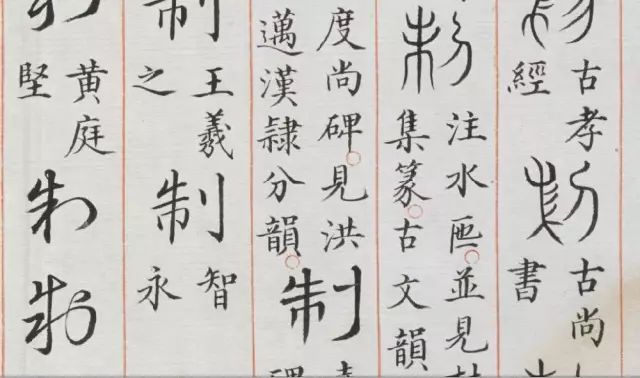 古孝
經
古尚
書
注水匜並見
集篆古文韻
度尚碑見洪
邁漢隸分韻
制
制
王羲
之
制
智
永
黃庭
堅
制
制